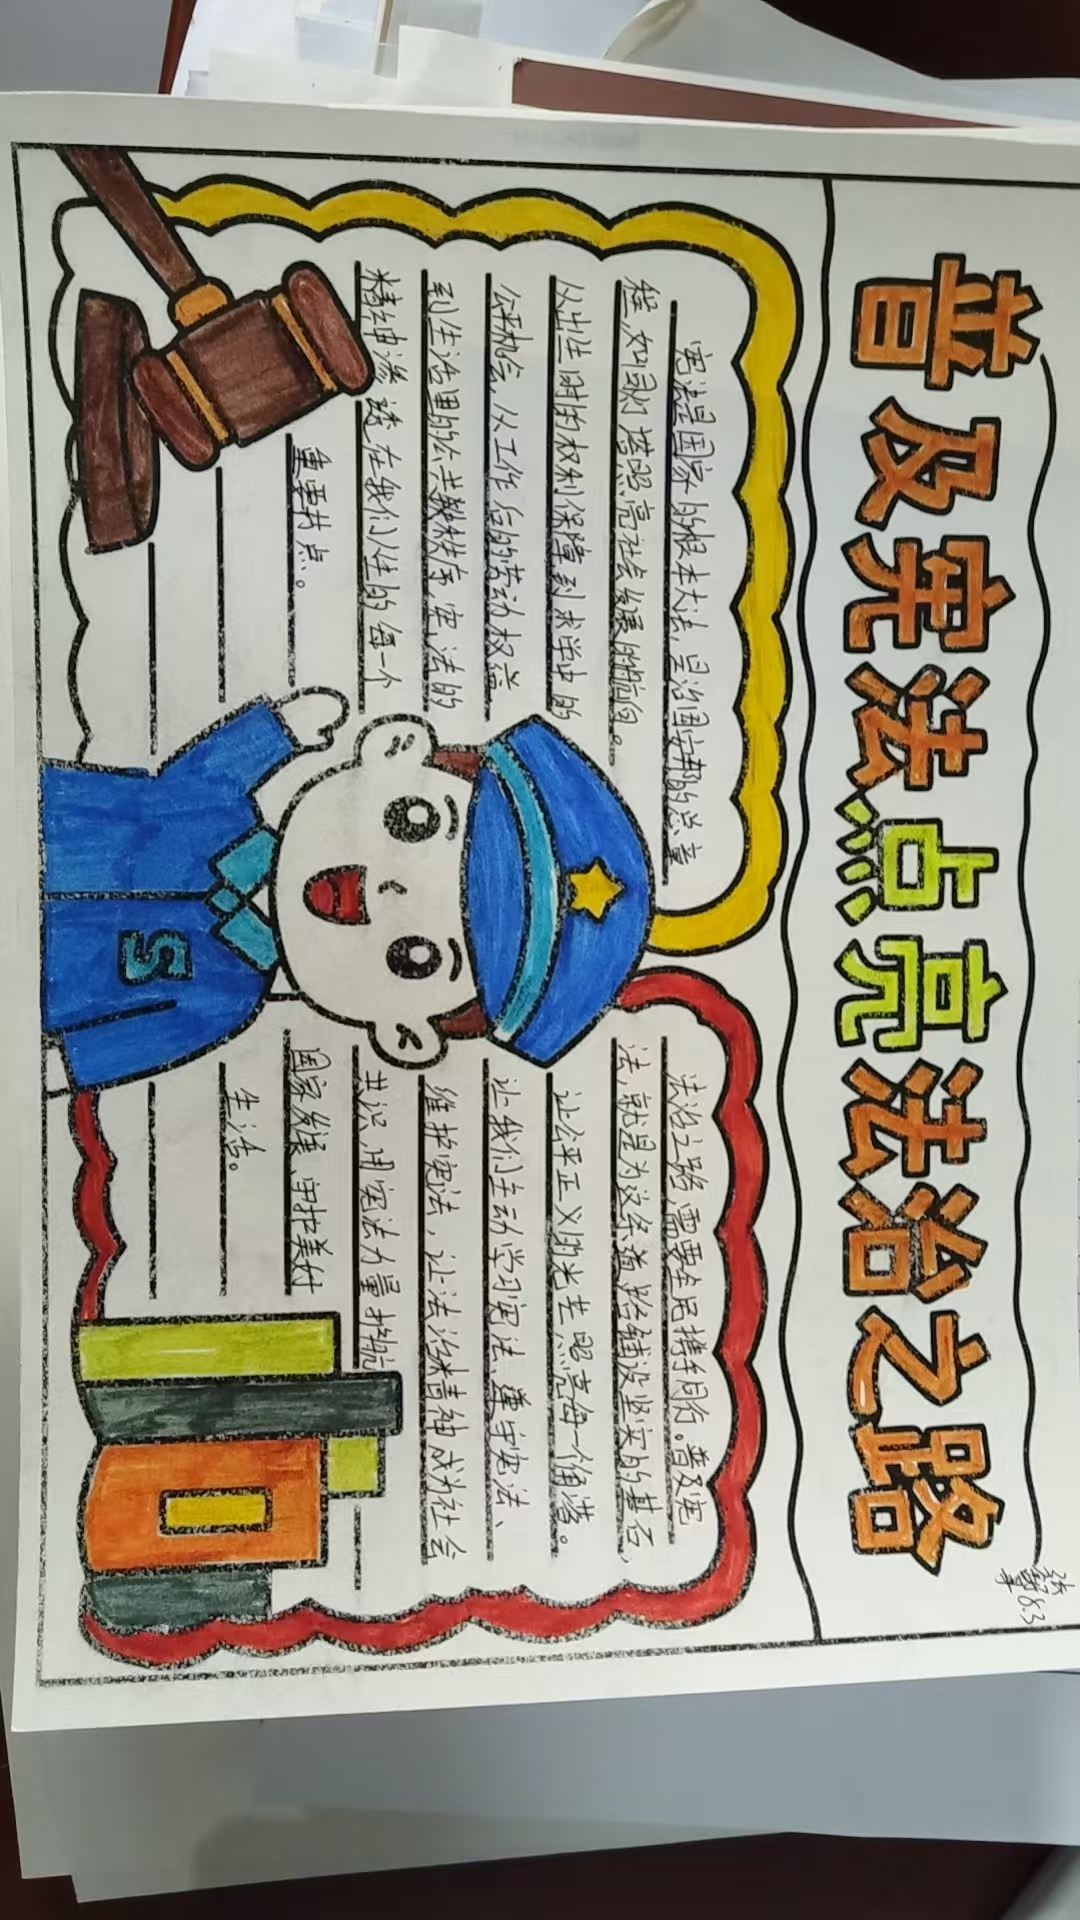 普及宪法点亮法治之路
张 8.3
宪法是国家的根本大法,是治国安邦的总章
程,如同灯塔照亮社会发展的航向。
从出生时的权利保障到求学中的
公平机会,从工作后的劳动权益
到生活里的公共秩序,宪法的
精神渗透在我们人生的每一个
重要节点。
法治之路,需要全民携手同行。普及宪
法,就是为这条道路铺设坚实的基石,
让公平正义的光芒照亮每一个角落。
让我们主动学习宪法、遵守宪法、
维护宪法,让法治精神成为社会
共识,用宪法力量护航
国家发展、守护美好
生活。
S